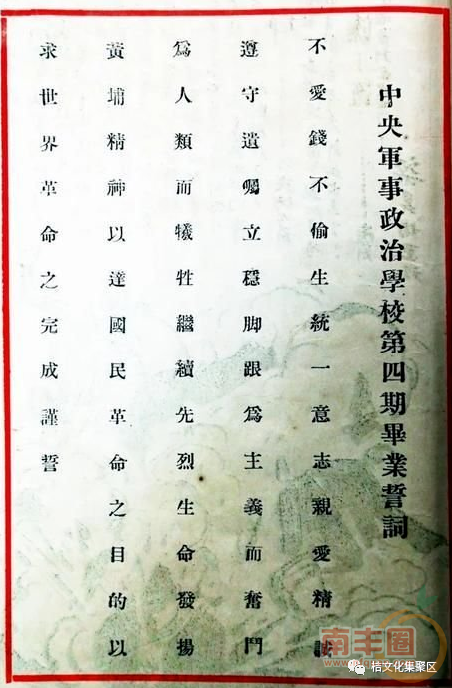 中央軍事政治學校第四期畢業誓詞
不愛錢不偷生統一意志親愛精誠
遵守遺囑立穩脚跟爲主義而奮鬥
爲人類而犧牲繼續先烈生命發揚
黃埔精神以達國民革命之目的以
求世界革命之完成謹誓
南丰圈
桔文化集聚区